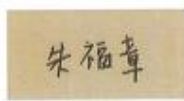 朱福章